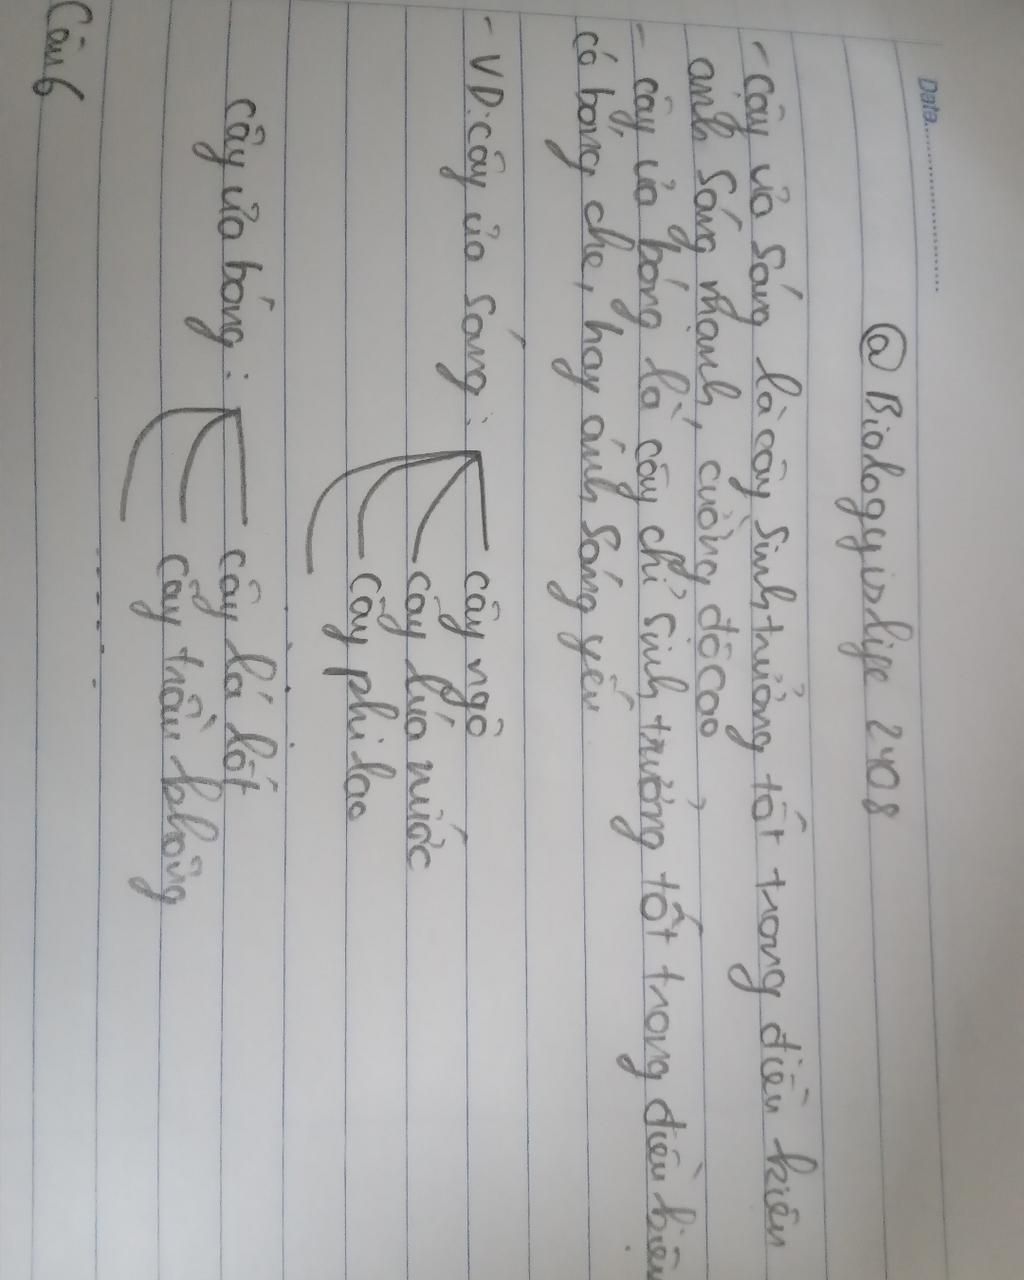 Date
@Biologyinlife 2408
- Cây ưa sáng là cây sinh trưởng tốt trong điều kiện
ánh sáng mạnh, cường độ cao
- cây ưa bóng là cây chỉ sinh trưởng tốt trong điều kiện
có bóng che, hay ánh sáng yếu
- VD: cây ưa sáng: cây ngô
cây lúa nước
cây phi lao
cây ưa bóng: cây lá lốt
cây trầu không
Câu 6